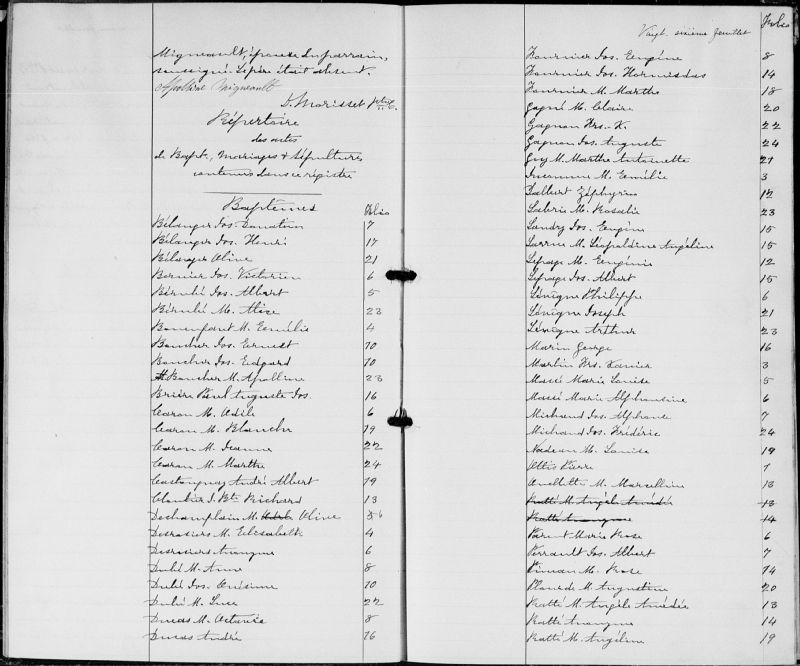 Migneault, épouse du parrain,
soussigné. Le père était absent.
Apolline Migneault
D. Morisset ptre
Répertoire
des actes
de Bapt., Mariages & Sépultures
contenus dans ce régistre
Baptêmes
Folio
Bélanger Jos. Donation 7
Bélanger Jos. Henri 17
Bélanger Aline 21
Bernier Jos. Victorien 6
Bérubé Jos. Albert 5
Bérubé M. Alice 23
Bonenfant M. Emélie 4
Boucher Jos. Ernest 10
Boucher Jos. Edgard 10
Boucher M. Apolline 23
Brière Paul Auguste Jos. 16
Caron M. Adèle 6
Caron M. Blanche 19
Caron M. Jeanne 22
Caron M. Marthe 24
Castonguay André Albert 19
Cloutier J. Bte Richard 13
Deschamplain M. Aline
Desrosiers M. Elisabeth 4
Desrosiers Anonyme 6
Dubé M. Anne 8
Dubé Jos. Onésime 10
Dubé M. Luce 22
Ducas M. Octavie 8
Ducas André 16
Vingt-sixième feuillet
Folio
Fournier Jos. Eugène 8
Fournier Jos. Hormisdas 14
Fournier M. Marthe 18
Gagné M. Claire 20
Gagnon Frs.-X. 22
Gagnon Jos. Auguste 24
Guy M. Marthe Antoinette 21
M. Emélie 3
Zéphyrin 12
M. Rosalie 23
Landry Jos. Eugène 15
M. Léopoldine Angéline 15
Lepage M. Eugénie 12
Lepage Jos. Albert 15
Lévêque Philippe 6
Lévêque Joseph 21
Lévêque Arthur 23
Marin George 16
Martin Frs. Xavier 3
Massé Marie Louise 5
Massé Marie Alphonsine 6
Michaud Jos. Alphonse 7
Michaud Jos. Frédéric 24
Nadeau M. Louise 19
Pierre 7
Ouellette M. Marcelline 13
Ratté M. Angèle Amédée 13
Ratté Anonyme 14
Parent Marie Rose 6
Perrault Jos. Albert 7
Pineau M. Rose 14
Plourde M. Augustine 20
Ratté M. Angèle Amédée 13
Ratté Anonyme 14
Ratté M. Angéline 19